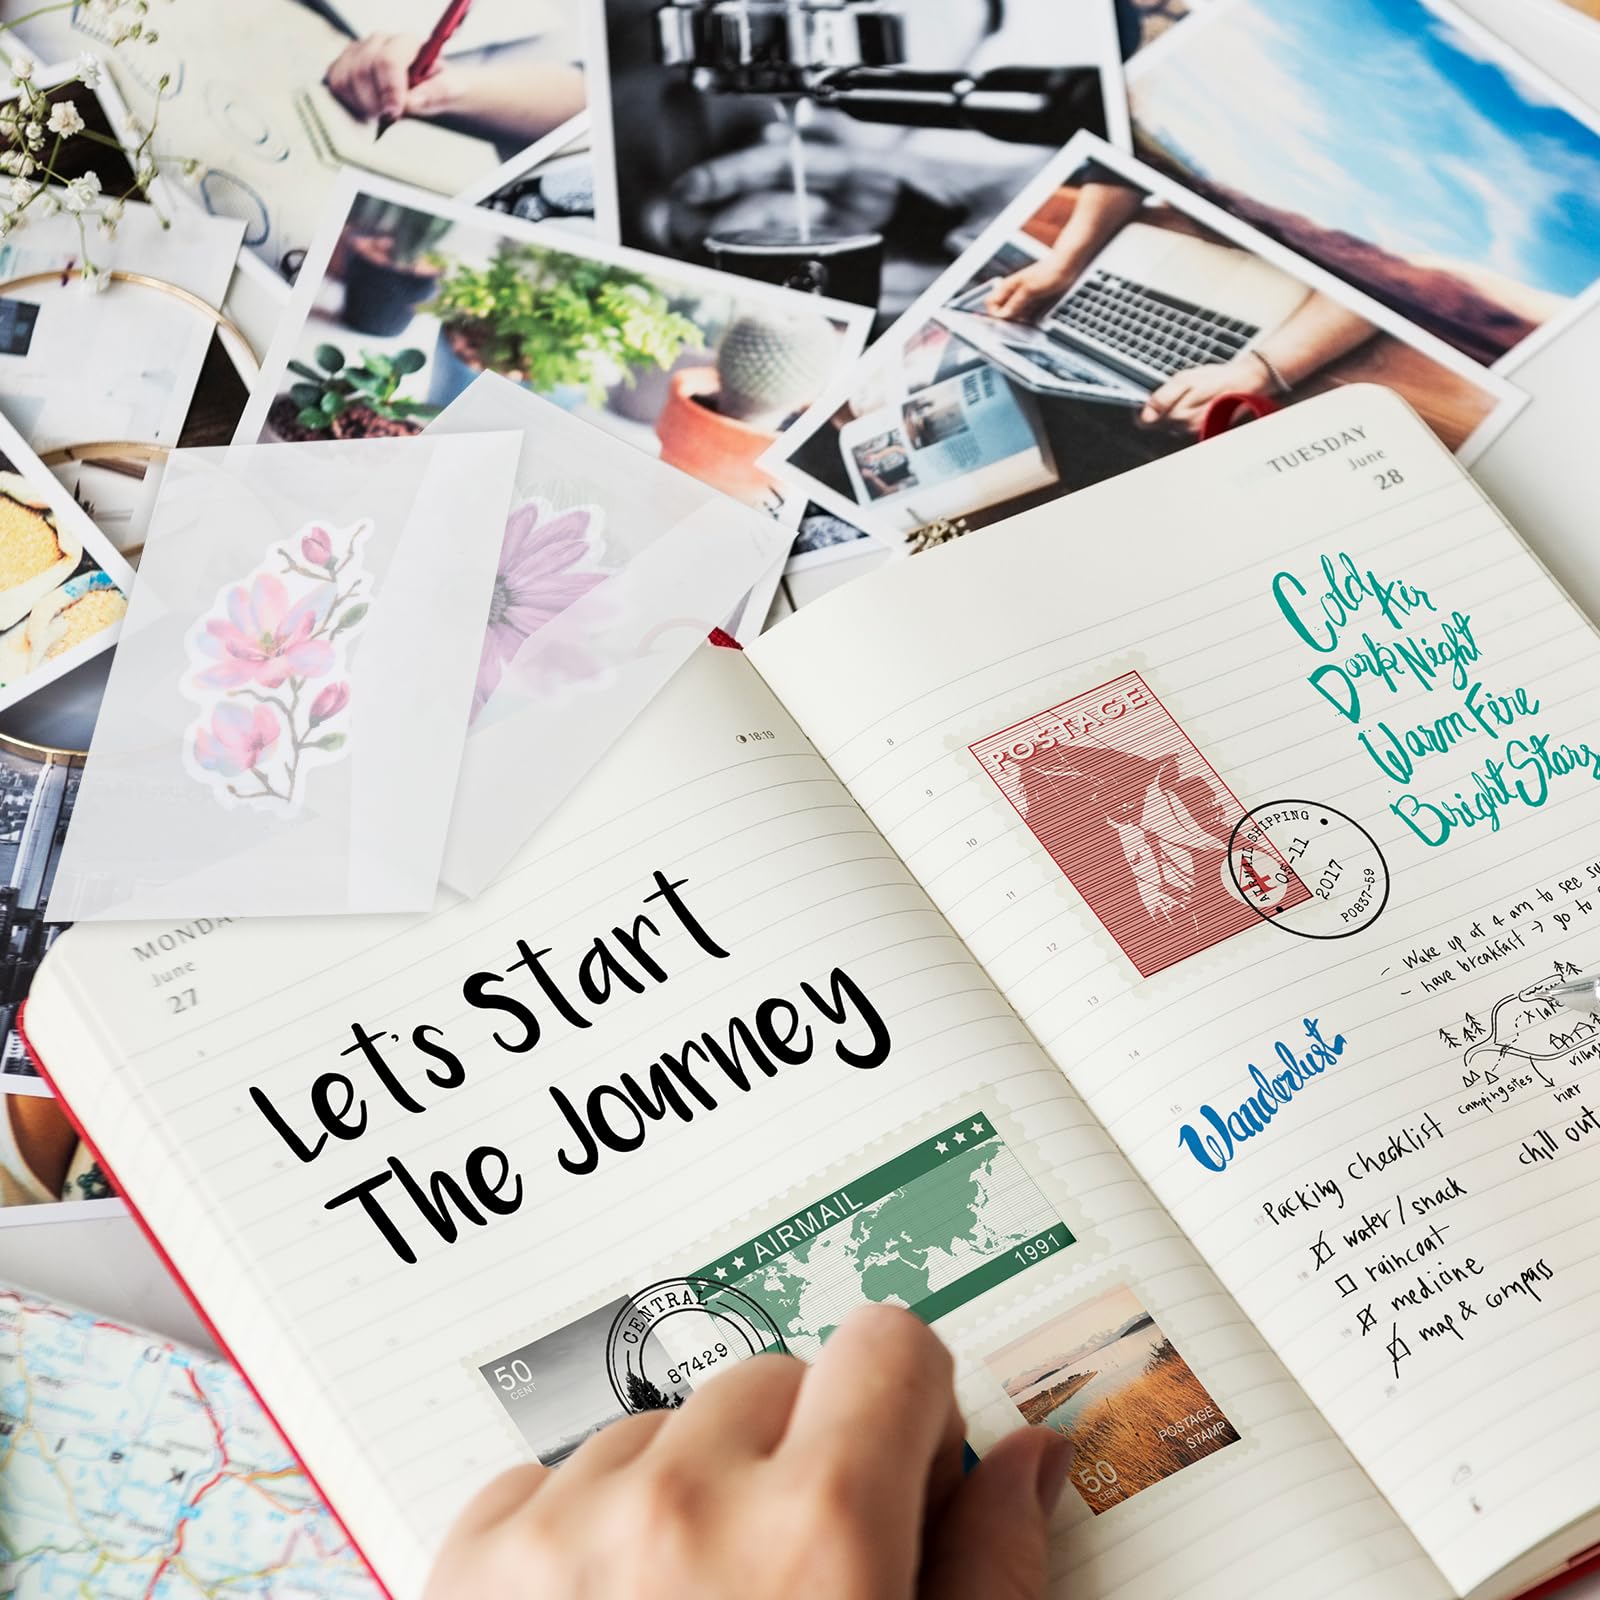 MONDA
June
27
18:19
Let's Start
The Journey
★★ AIRMAIL ★★★
1991
CENTRAL
87429
50
CENT
POSTAGE
STAMP
50
CENT
TUESDAY
June
28
Cold Air
Dark Night
Warm Fire
Bright Stars
POSTAGE
4
AIRMAIL SHIPPING
2017
PO837-59
8
9
10
11
12
13
14
15
- Wake up at 4 am to see su
- have breakfast → go to
x lake
campingsites
river
chill out
Wanderlust
Packing checklist
water / snack
raincoat
medicine
map & compass